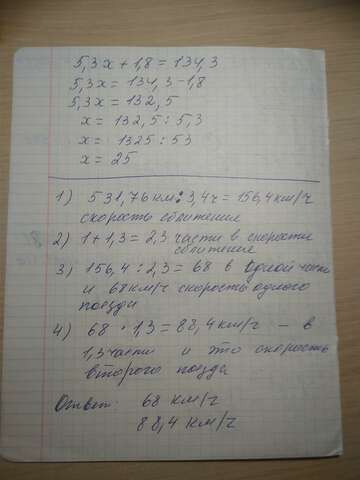 5,3x + 1,8 = 134,3
5,3x = 134,3-1,8
5,3x = 132,5
x = 132,5 : 5,3
x = 1325 : 53
x = 25
1) 531,76 км : 3,4ч = 156,4 км/ч
скорость сближения
2) 1 + 1,3 = 2,3 части в скорости
сближения
3) 156,4 : 2,3 = 68 в одной части
и 68 км/ч скорость одного
поезда
4) 68 · 1,3 = 88,4 км/ч — в
1,3 части и это скорость
второго поезда
Ответ: 68 км/ч
88,4 км/ч